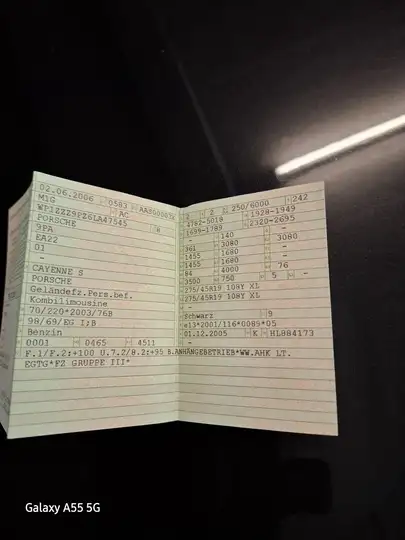 02.06.2006 0583 AAS00003X
M1G AC
WP1ZZZ9PZ6LA47545
PORSCHE
9PA
EA22
01
-
CAYENNE S
PORSCHE
Geländefz.Pers.bef.
Kombilimousine
70/220*2003/76B
98/69/EG I;B
Benzin
0001 0465 4511
2 2 250/6000 242
4782-5018 1928-1949
1699-1789 2320-2695
- 140 -
361 3080 3080
1455 1680 -
1455 1680 -
84 4000 76
3500 750 5 -
275/45R19 108Y XL
275/45R19 108Y XL
-
Schwarz 9
e13*2001/116*0089*05
01.12.2005 K HL884173
-
F.1/F.2:+100 U.7.2/8.2:+95 B.ANHÄNGEBETRIEB*WW.AHK LT.
EGTG*FZ GRUPPE III*
Galaxy A55 5G